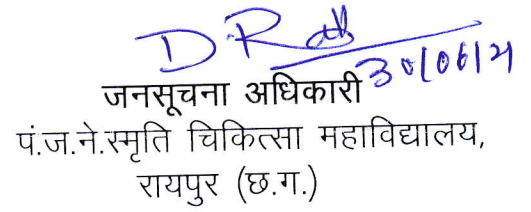 30/06/21
जनसूचना अधिकारी
पं.ज.ने.स्मृति चिकित्सा महाविद्यालय,
रायपुर (छ.ग.)